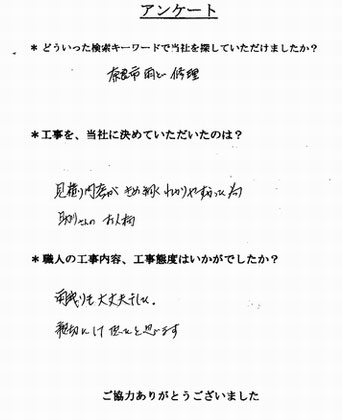 アンケート
＊どういった検索キーワードで当社を探していただけましたか？
奈良市 雨どい 修理
＊工事を、当社に決めていただいたのは？
見積り内容が わかりやすかった為
お人柄
＊職人の工事内容、工事態度はいかがでしたか？
雨もりも大丈夫でした。
思います
ご協力ありがとうございました